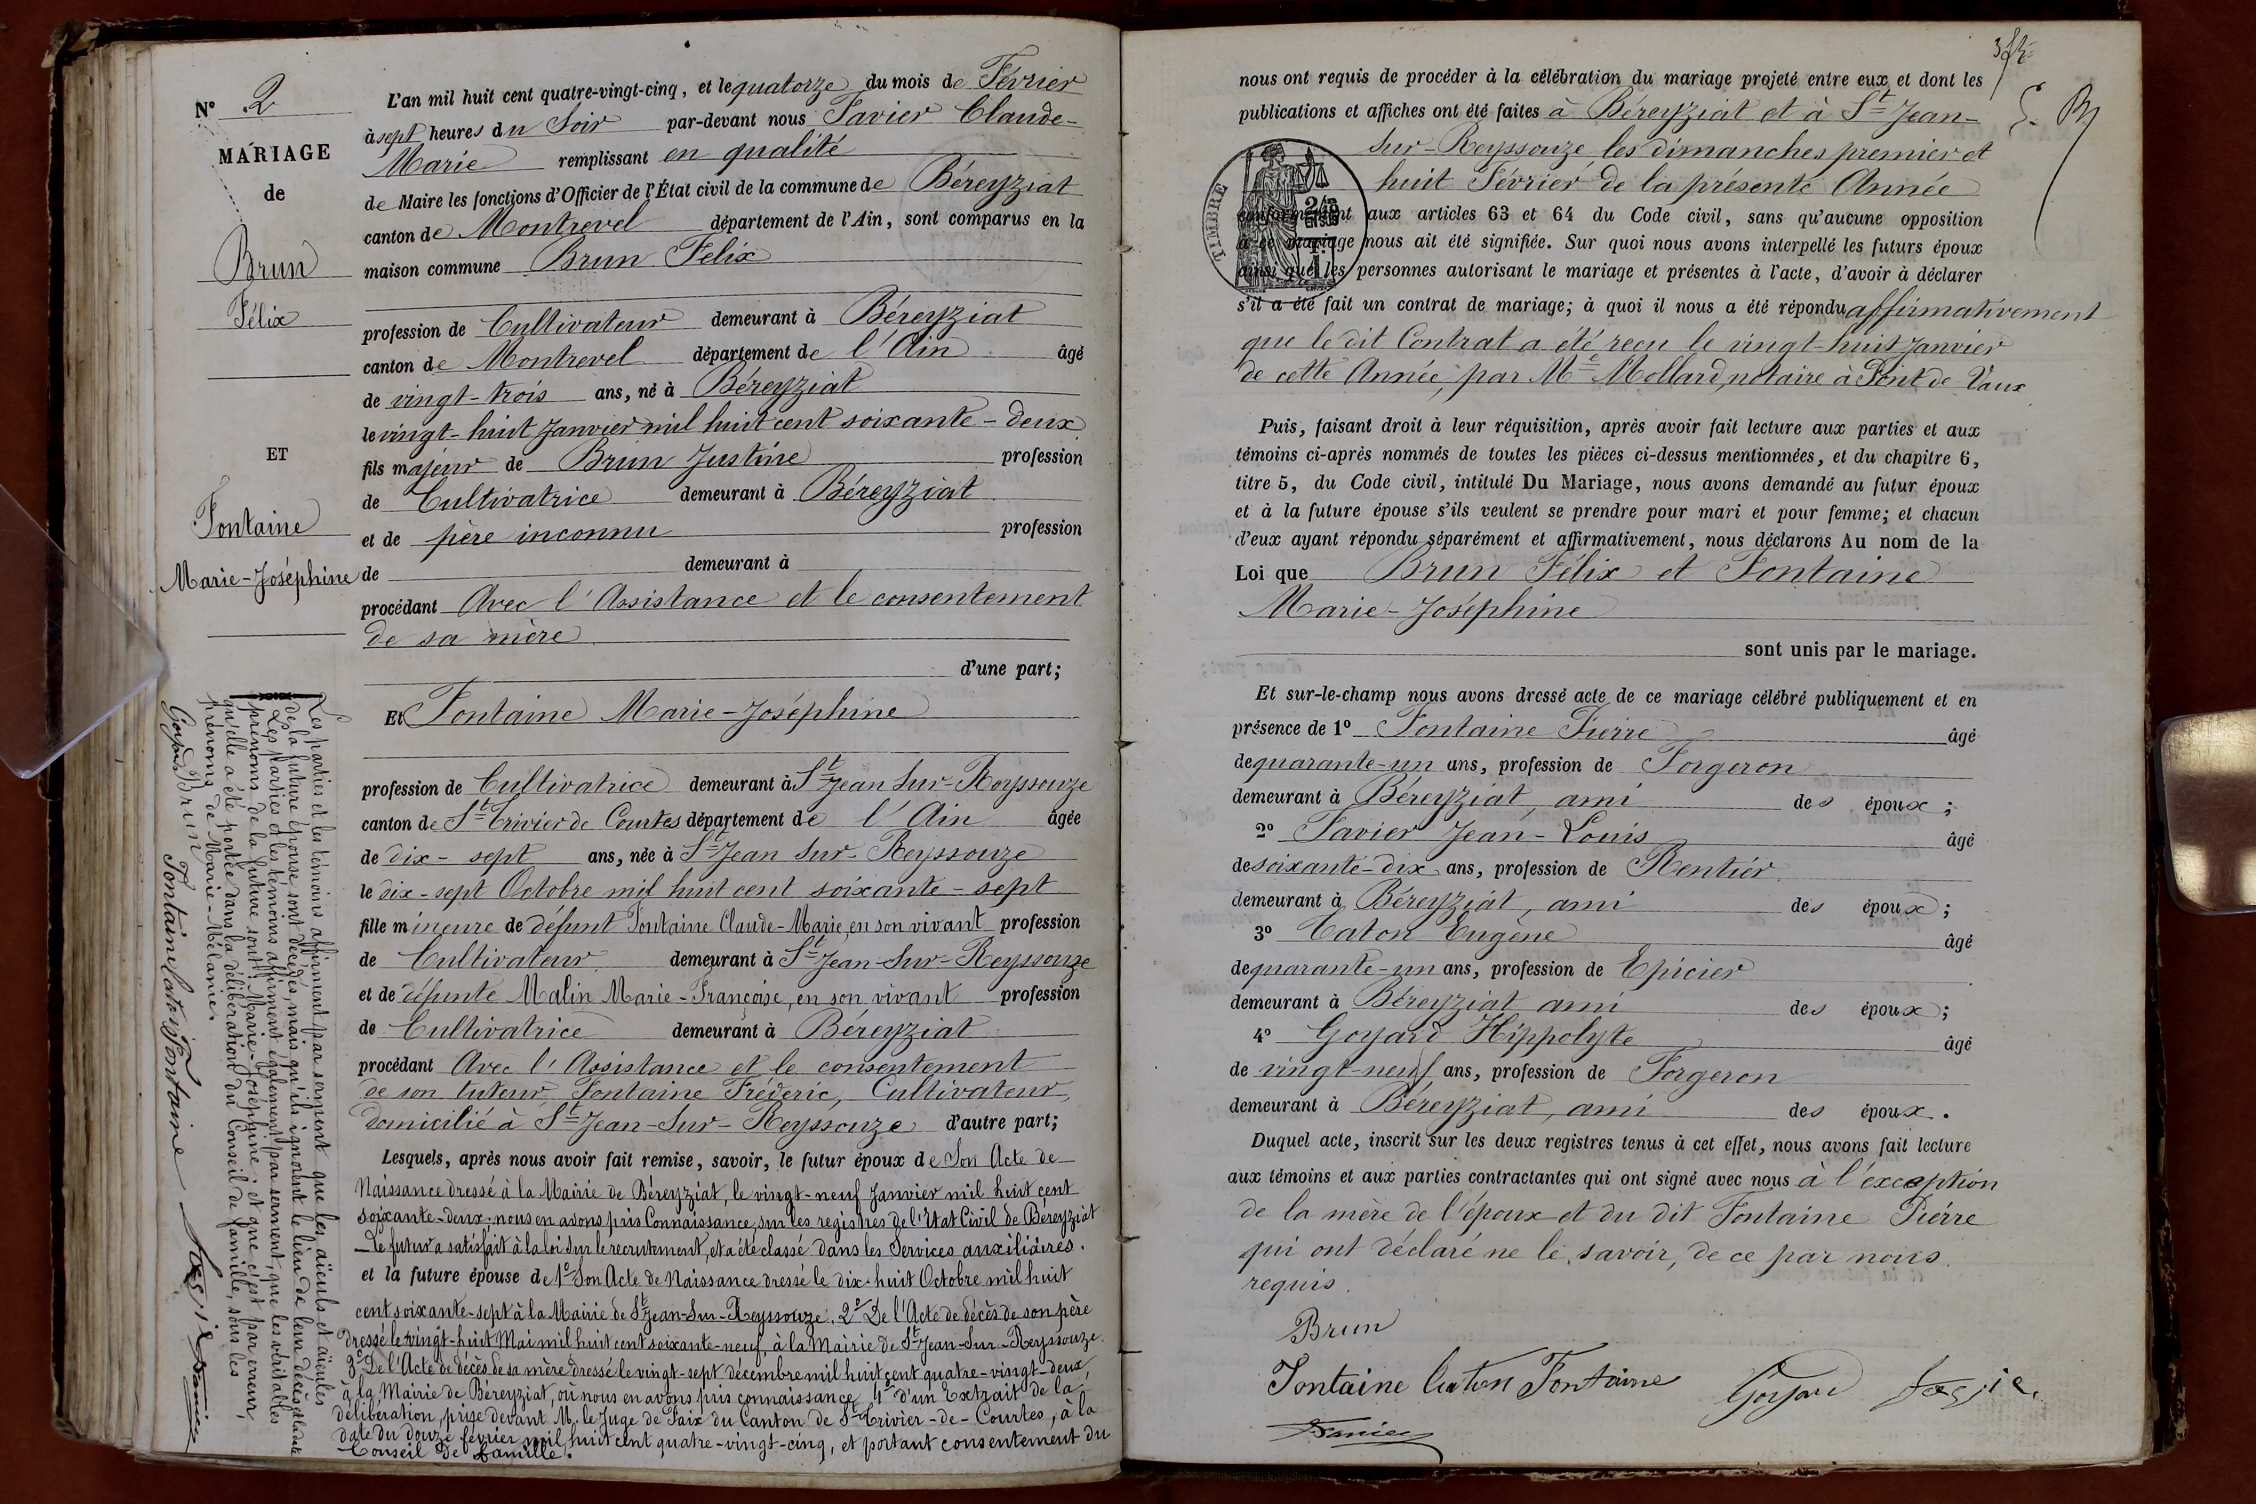 N° 2
MARIAGE
de
Brun
Félix
ET
Fontaine
Marie-Joséphine
L'an mil huit cent quatre-vingt-cinq, et le quatorze du mois de Février
à sept heures du Soir par-devant nous Favier Claude-
Marie remplissant en qualité
de Maire les fonctions d'Officier de l'État civil de la commune de Béreyziat
canton de Montrevel département de l'Ain, sont comparus en la
maison commune Brun Félix
profession de Cultivateur demeurant à Béreyziat
canton de Montrevel département de l'Ain âgé
de vingt-trois ans, né à Béreyziat
le vingt-huit Janvier mil huit cent soixante-deux
fils majeur de Brun Justine profession
de Cultivatrice demeurant à Béreyziat
et de père inconnu profession
de demeurant à
procédant Avec l'Assistance et le consentement
de sa mère
d'une part;
Et Fontaine Marie-Joséphine
profession de Cultivatrice demeurant à St Jean Sur-Reyssouze
canton de St Trivier de Courtes département de l'Ain âgée
de dix-sept ans, née à St Jean Sur-Reyssouze
le dix-sept Octobre mil huit cent soixante-sept
fille mineure de défunt Fontaine Claude-Marie, en son vivant profession
de Cultivateur demeurant à St Jean-Sur-Reyssouze
et de défunte Malin Marie-Françoise, en son vivant profession
de Cultivatrice demeurant à Béreyziat
procédant Avec l'Assistance et le consentement
de son tuteur Fontaine Fréderic, Cultivateur,
domicilié à St Jean-Sur-Reyssouze d'autre part;
Lesquels, après nous avoir fait remise, savoir, le futur époux de Son Acte de
Naissance dressé à la Mairie de Béreyziat, le vingt-neuf Janvier mil huit cent
soixante-deux; nous en avons pris Connaissance, sur les registres de l'Etat Civil de Béreyziat
Le futur a satisfait à la loi sur le recrutement, et a été classé dans les Services auxiliaires.
et la future épouse de 1° Son Acte de Naissance dressé le dix-huit Octobre mil huit
cent soixante-sept à la Mairie de St Jean-Sur-Reyssouze. 2° De l'Acte de décès de son père
dressé le vingt-huit Mai mil huit cent soixante-neuf, à la Mairie de St Jean-Sur-Reyssouze.
3° De l'Acte de décès de sa mère dressé le vingt-sept décembre mil huit cent quatre-vingt-deux,
à la Mairie de Béreyziat, où nous en avons pris connaissance, 4° d'un Extrait de la
délibération, prise devant Mr le Juge de Paix du Canton de St Trivier-de-Courtes, à la
date du douze février mil huit cent quatre-vingt-cinq, et portant consentement du
Conseil de famille.
Les parties et les témoins affirment par serment que les aïeuls et aïeules
de la future épouse sont décédés, mais qu'ils ignorent le lieu de leur décès et la date
Les parties et les témoins affirment également par serment, que les véritables
prénoms de la future sont: Marie-Joséphine et que c'est par erreur,
qu'elle a été portée dans la délibération du Conseil de famille, sous les
prénoms de Marie-Mélanie.
Goyard Brun Fontaine Caton Fontaine
nous ont requis de procéder à la célébration du mariage projeté entre eux et dont les
publications et affiches ont été faites à Béreyziat et à St Jean-
sur-Reyssouze les dimanches premier et
huit Février de la présente Année
conformément aux articles 63 et 64 du Code civil, sans qu'aucune opposition
à ce mariage nous ait été signifiée. Sur quoi nous avons interpellé les futurs époux
ainsi que les personnes autorisant le mariage et présentes à l'acte, d'avoir à déclarer
s'il a été fait un contrat de mariage; à quoi il nous a été répondu affirmativement
que le dit Contrat a été reçu le vingt-huit Janvier
de cette Année, par Me Mollard, notaire à Pont de Vaux
TIMBRE
Puis, faisant droit à leur réquisition, après avoir fait lecture aux parties et aux
témoins ci-après nommés de toutes les pièces ci-dessus mentionnées, et du chapitre 6,
titre 5, du Code civil, intitulé Du Mariage, nous avons demandé au futur époux
et à la future épouse s'ils veulent se prendre pour mari et pour femme; et chacun
d'eux ayant répondu séparément et affirmativement, nous déclarons Au nom de la
Loi que Brun Félix et Fontaine
Marie-Joséphine
sont unis par le mariage.
Et sur-le-champ nous avons dressé acte de ce mariage célébré publiquement et en
présence de 1° Fontaine Pierre âgé
de quarante-un ans, profession de Forgeron
demeurant à Béreyziat, ami des époux;
2° Favier Jean-Louis âgé
de soixante-dix ans, profession de Rentier
demeurant à Béreyziat, ami des époux;
3° Caton Eugène âgé
de quarante-un ans, profession de Epicier
demeurant à Béreyziat ami des époux;
4° Goyard Hippolyte âgé
de vingt-neuf ans, profession de Forgeron
demeurant à Béreyziat, ami des époux.
Duquel acte, inscrit sur les deux registres tenus à cet effet, nous avons fait lecture
aux témoins et aux parties contractantes qui ont signé avec nous à l'exception
de la mère de l'époux et du dit Fontaine Pierre
qui ont déclaré ne le savoir, de ce par nous
requis.
Brun
Fontaine Caton Fontaine Goyard
Favier